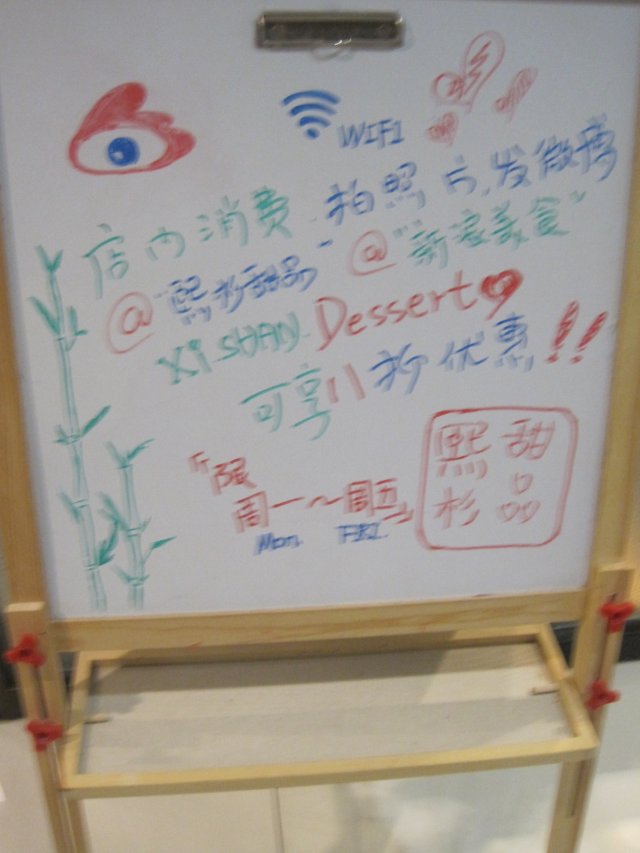 WIFI
店内消费 拍照片,发微博
@"熙杉甜品" @"新浪美食"
XiSHAN. Dessert
可享八折优惠!!
"限
周一~周五"
Mon. FRI.
熙 甜
杉 品